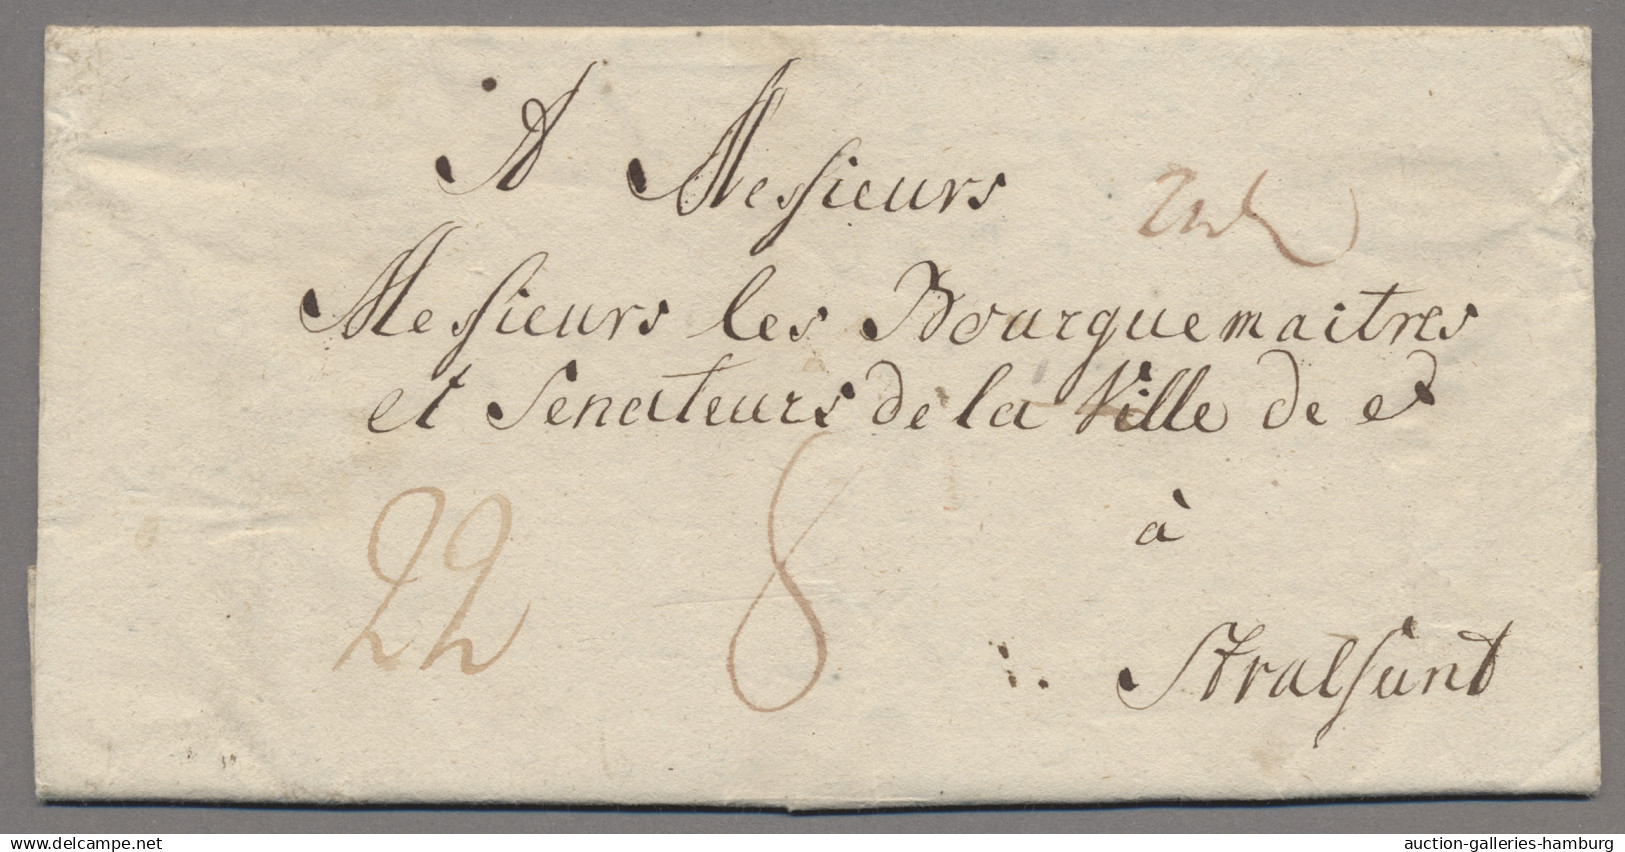 A Messieurs
Messieurs les Bourguemaitres
et Senateurs de la Ville de et
à
22 8
Stralsund
delcampe.net
auction-galleries-hamburg